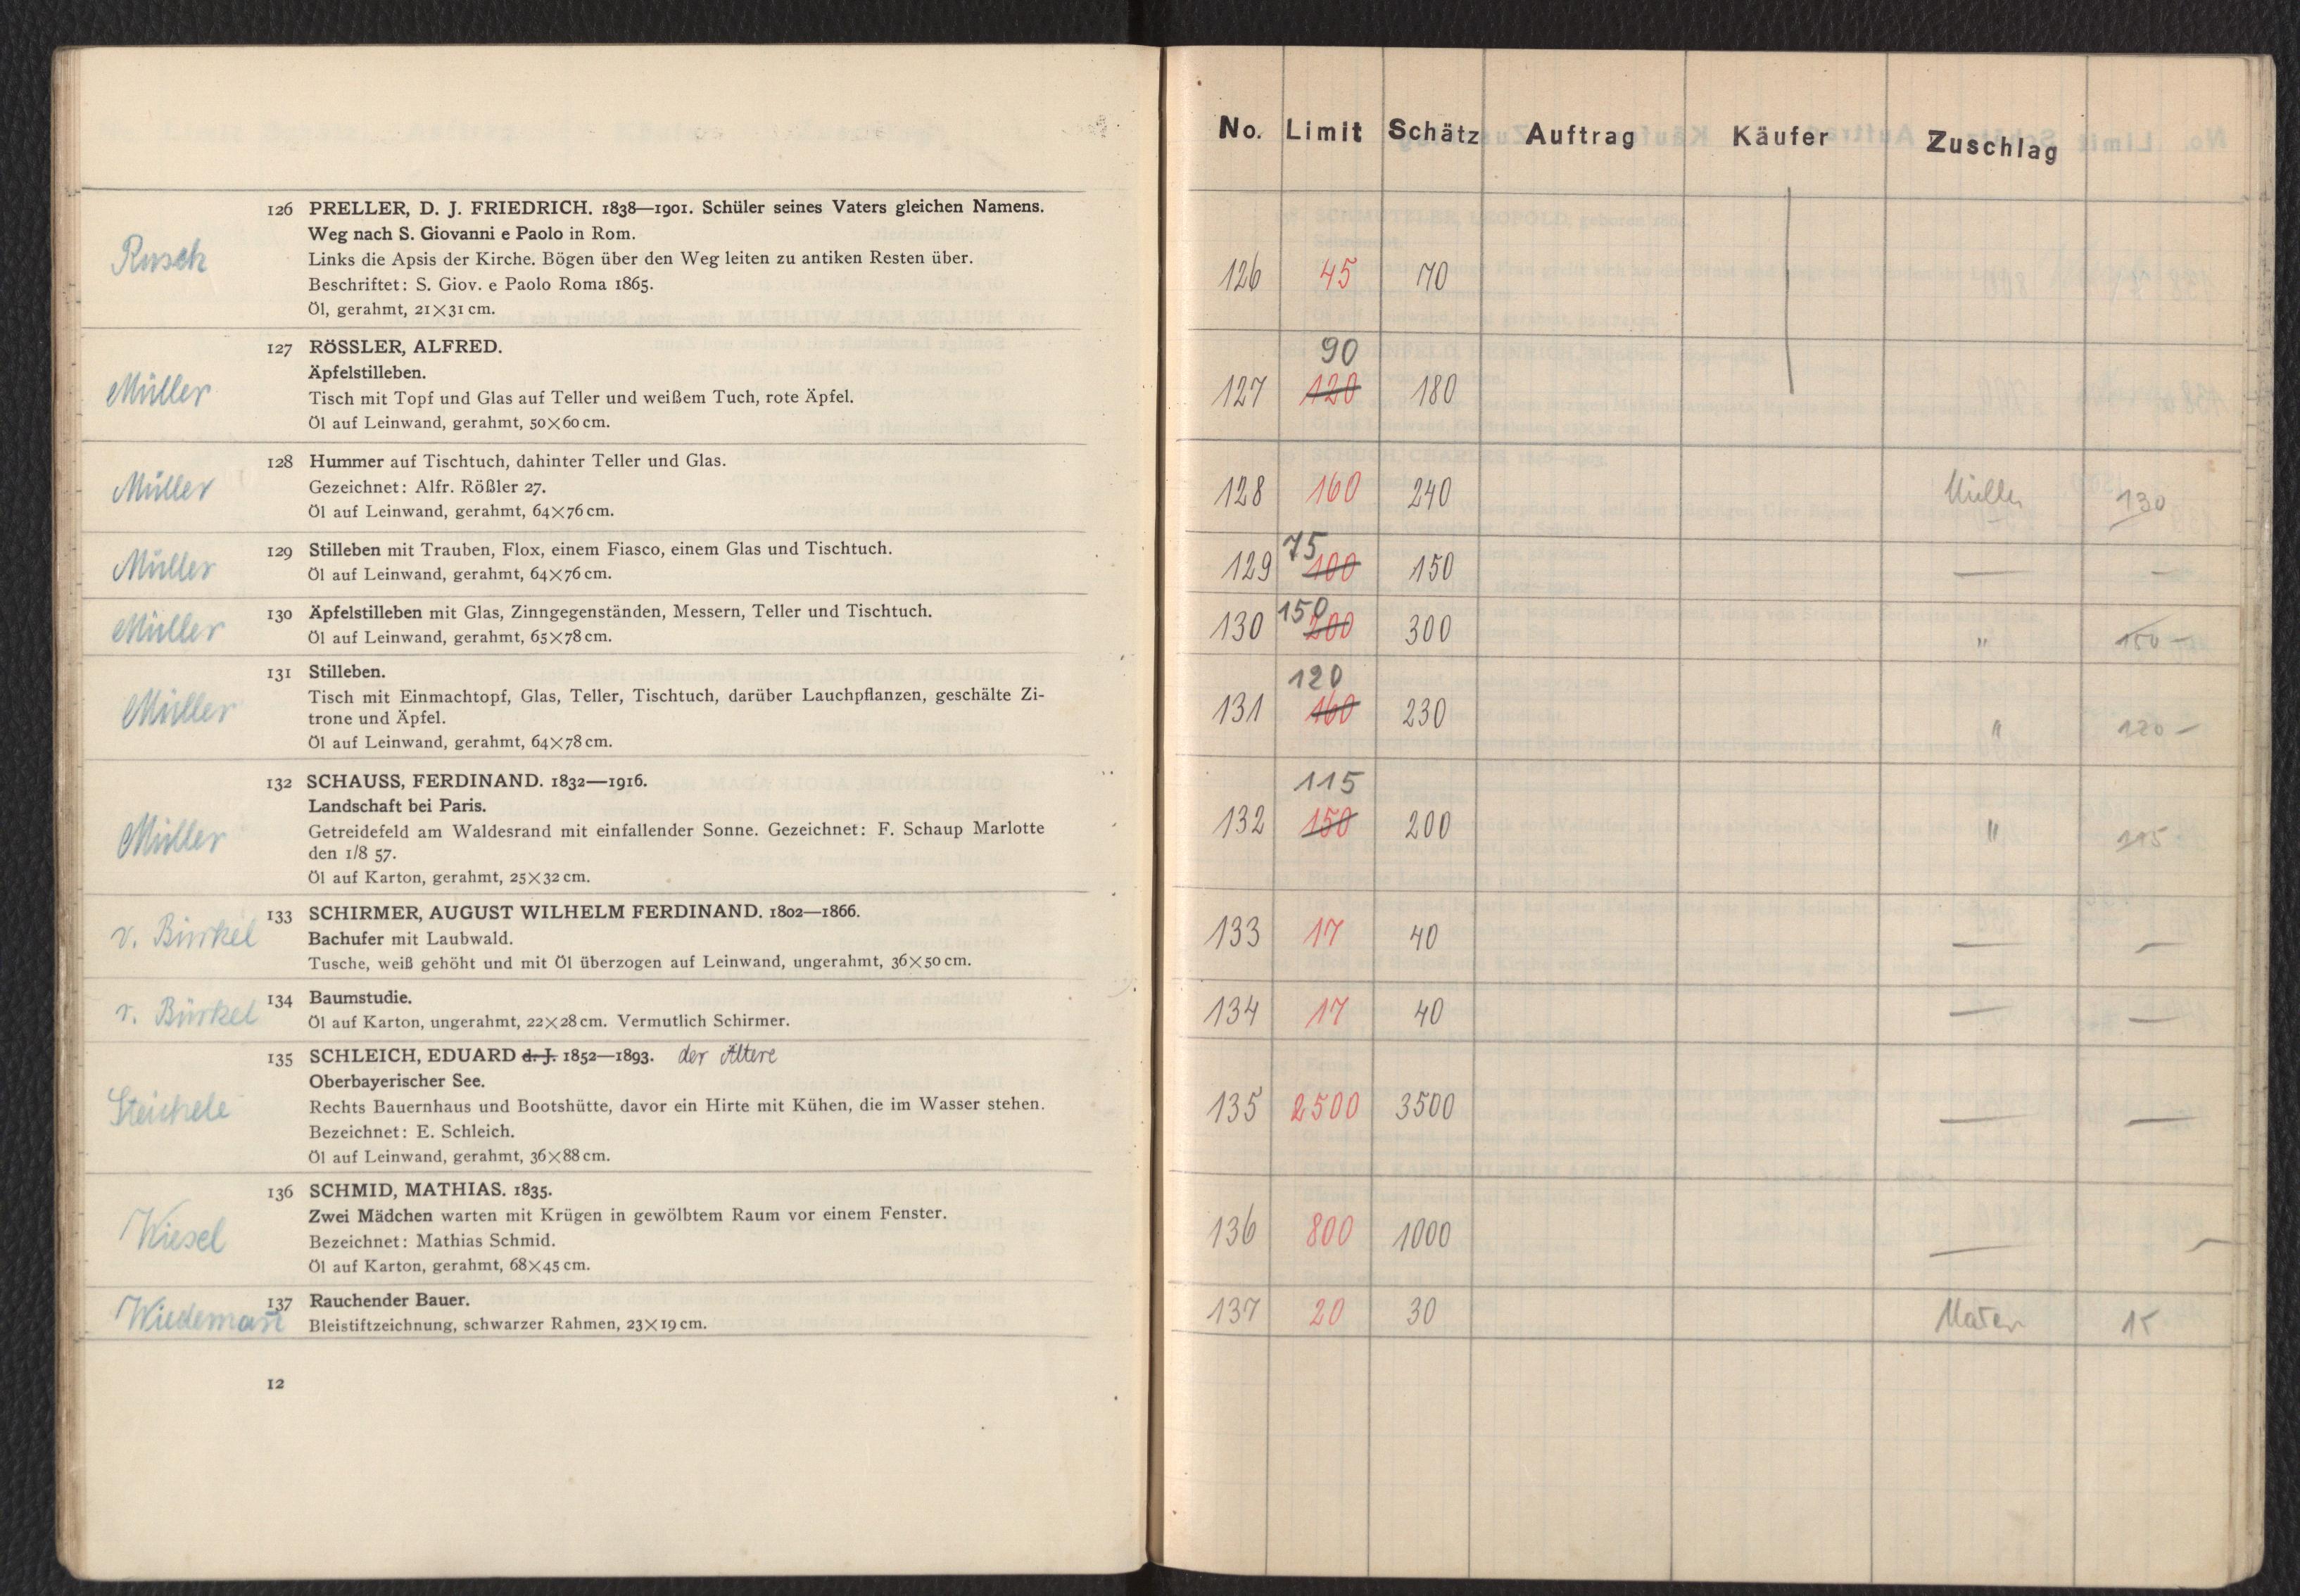 126 PRELLER, D. J. FRIEDRICH. 1838—1901. Schüler seines Vaters gleichen Namens.
Weg nach S. Giovanni e Paolo in Rom.
Rusch
Links die Apsis der Kirche. Bögen über den Weg leiten zu antiken Resten über.
Beschriftet: S. Giov. e Paolo Roma 1865.
Öl, gerahmt, 21×31 cm.
127 RÖSSLER, ALFRED.
Äpfelstilleben.
Müller
Tisch mit Topf und Glas auf Teller und weißem Tuch, rote Äpfel.
Öl auf Leinwand, gerahmt, 50×60 cm.
128 Hummer auf Tischtuch, dahinter Teller und Glas.
Müller
Gezeichnet: Alfr. Rößler 27.
Öl auf Leinwand, gerahmt, 64×76 cm.
129 Stilleben mit Trauben, Flox, einem Fiasco, einem Glas und Tischtuch.
Müller
Öl auf Leinwand, gerahmt, 64×76 cm.
130 Äpfelstilleben mit Glas, Zinngegenständen, Messern, Teller und Tischtuch.
Müller
Öl auf Leinwand, gerahmt, 65×78 cm.
131 Stilleben.
Tisch mit Einmachtopf, Glas, Teller, Tischtuch, darüber Lauchpflanzen, geschälte Zi-
Müller
trone und Äpfel.
Öl auf Leinwand, gerahmt, 64×78 cm.
132 SCHAUSS, FERDINAND. 1832—1916.
Landschaft bei Paris.
Müller
Getreidefeld am Waldesrand mit einfallender Sonne. Gezeichnet: F. Schaup Marlotte
den 1/8 57.
Öl auf Karton, gerahmt, 25×32 cm.
133 SCHIRMER, AUGUST WILHELM FERDINAND. 1802—1866.
v. Bürkel
Bachufer mit Laubwald.
Tusche, weiß gehöht und mit Öl überzogen auf Leinwand, ungerahmt, 36×50 cm.
134 Baumstudie.
v. Bürkel
Öl auf Karton, ungerahmt, 22×28 cm. Vermutlich Schirmer.
135 SCHLEICH, EDUARD d. J. 1852—1893. der Ältere
Oberbayerischer See.
Steichele
Rechts Bauernhaus und Bootshütte, davor ein Hirte mit Kühen, die im Wasser stehen.
Bezeichnet: E. Schleich.
Öl auf Leinwand, gerahmt, 36×88 cm.
136 SCHMID, MATHIAS. 1835.
Zwei Mädchen warten mit Krügen in gewölbtem Raum vor einem Fenster.
Wiesel
Bezeichnet: Mathias Schmid.
Öl auf Karton, gerahmt, 68×45 cm.
137 Rauchender Bauer.
Wiedemann
Bleistiftzeichnung, schwarzer Rahmen, 23×19 cm.
12
No. Limit Schätz Auftrag Käufer Zuschlag
126 45 70
90
127 120 180
128 160 240 Müller 130
75
129 100 150 — —
150
130 200 300 " 150 —
120
131 160 230 " 120 —
115
132 150 200 " 115
133 17 40 — —
134 17 40 — —
135 2500 3500 — —
136 800 1000 — —
137 20 30 15